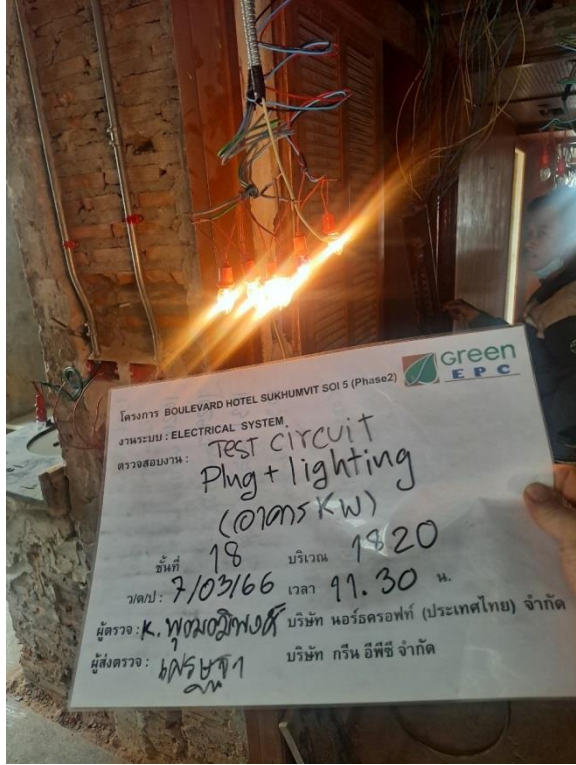 Green
EPC
โครงการ BOULEVARD HOTEL SUKHUMVIT SOI 5 (Phase2)
งานระบบ : ELECTRICAL SYSTEM
ตรวจสอบงาน : Test circuit
Plug + lighting
(อาคาร KW)
ชั้นที่ 18 บริเวณ 1820
ว/ด/ป : 7/03/66 เวลา 11.30 น.
ผู้ตรวจ : K. บริษัท นอร์ธครอฟท์ (ประเทศไทย) จำกัด
ผู้ส่งตรวจ : เศรษฐา บริษัท กรีน อีพีซี จำกัด